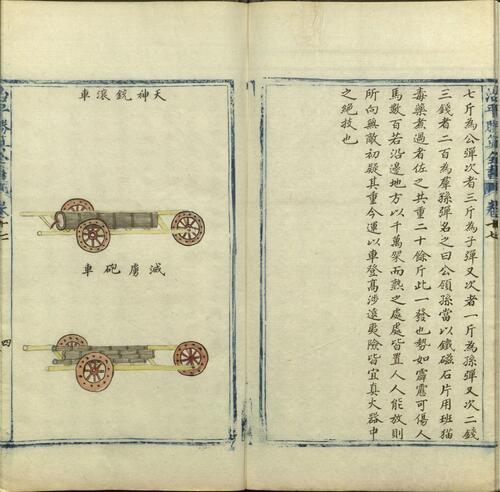 七斤為公彈次者三斤為子彈又次者一斤為孫彈又次二錢
三錢者二百為羣孫彈名之曰公領孫當以鐵磁石片用班猫
毒藥煮過者佐之共重二十餘斤此一發也勢如霹靂可傷人
馬數百若沿邊地方以千萬架而熟之處處皆置人人能放則
所向無敵初疑其重今運以車登高涉遠夷險皆宜真火器中
之絕技也
天神銃滾車
滅虜砲車
四